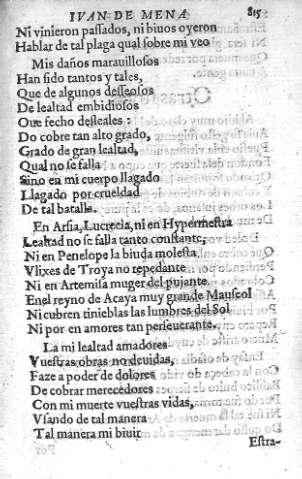 IVAN DE MENA. 815
Ni vinieron passados, ni biuos oyeron
Hablar de tal plaga qual sobre mi veo
Mis daños marauillosos
Han sido tantos y tales,
Que de algunos desseosos
De lealtad embidiosos
Que fecho desleales:
Do cobre tan alto grado,
Grado de gran lealtad,
Qual no se falla
Sino en mi cuerpo llagado
Llagado por crueldad
De tal batalla.
En Arsia, Lucrecia, ni en Hypermestra
Lealtad no se falla tanto constante,
Ni en Penelope la biuda molesta,
Vlixes de Troya no repedante
Ni en Artemisa muger del pujante
Enel reyno de Acaya muy grande Mauseol
Ni cubren tinieblas las lumbres del Sol
Ni por en amores tan perseuerante.
La mi lealtad amadores
Vuestras obras no deuidas,
Faze a poder de dolores
De cobrar merecedores
Con mi muerte vuestras vidas,
Vsando de tal manera
Tal manera mi biuir
Estra-